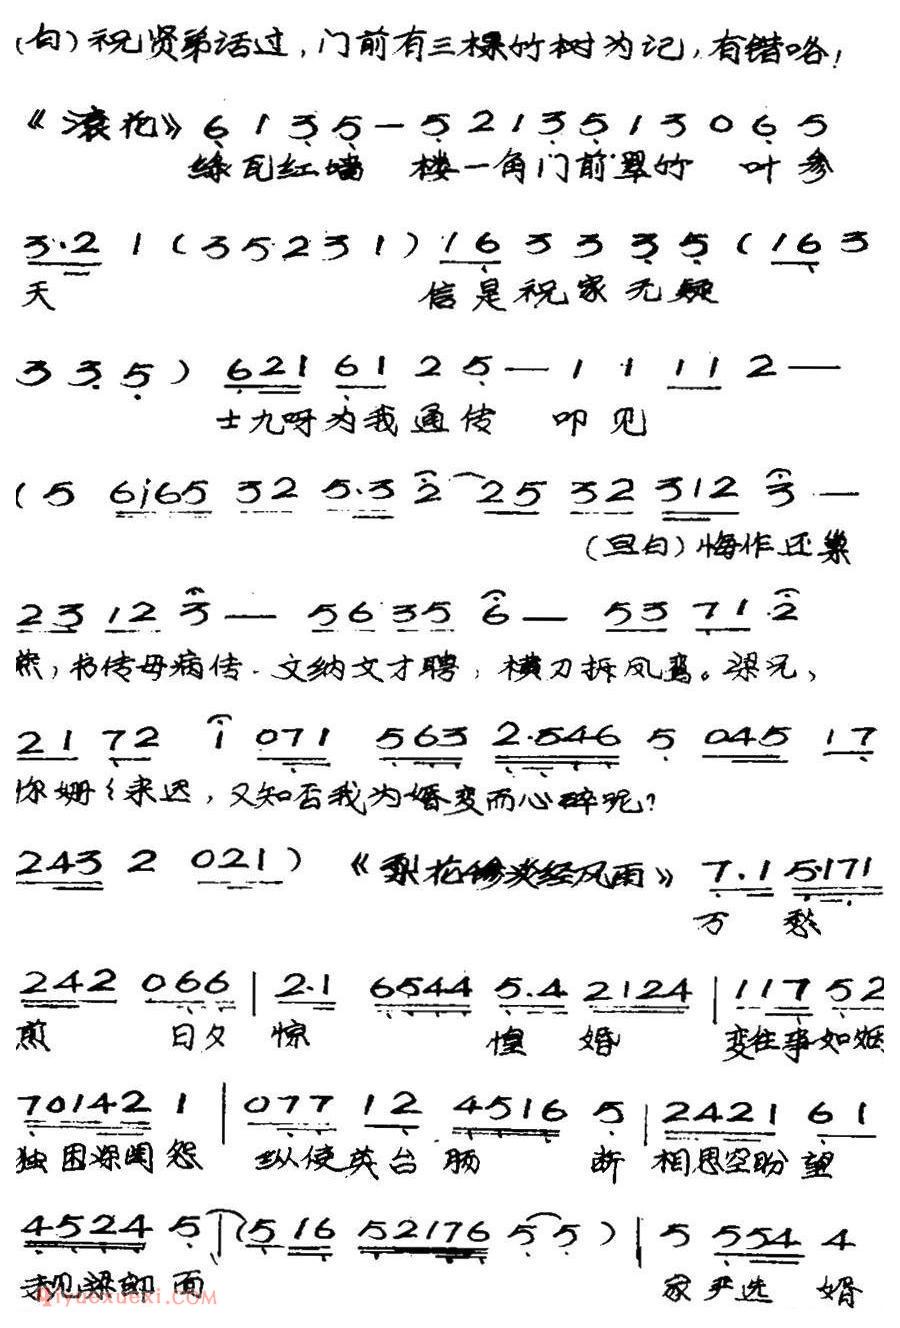 (白)祝贤弟话过,门前有三棵竹树为记,有错咯!
《滚花》6 1 3 5 — 5 2 1 3 5 1 3 0 6 5
绿瓦红墙 楼一角门前翠竹 叶参
3·2 1 ( 3 5 2 3 1 ) 1 6 3 3 3 5 ( 1 6 3
天 信是祝家无疑
3 3 5 ) 6 2 1 6 1 2 5 — 1 1 1 1 2 —
士九呀为我通传 叩见
( 5 6 i 6 5 3 2 5·3 2 2 5 3 2 3 1 2 3 —
(旦白)悔作还巢
2 3 1 2 3 — 5 6 3 5 6 — 5 3 7 1 2
熊,书传母病传.文纳文才聘,横刀拆凤鸾。梁兄、
2 1 7 2 i 0 7 1 5 6 3 2·5 4 6 5 0 4 5 1 7
你姗〻来迟,又知否我为婚变而心碎呢?
2 4 3 2 0 2 1 ) 《梨花惨淡经风雨》 7·1 5·1 7 1
万 愁
2 4 2 0 6 6 | 2·1 6 5 4 4 5·4 2 1 2 4 | 1 1 7 5 2
煎 日夕 惊 惶 婚 变往事如烟
7 0 1 4 2 1 | 0 7 7 1 2 4 5 1 6 5 | 2 4 2 1 6 1
独困深闺怨 纵使英台 肠 断 相思空盼望
4 5 2 4 5 | ( 5 1 6 5 2 1 7 6 5 5 ) | 5 5 5 4 4
未见梁郎 面 家严选 婿
iyuexuexi.com